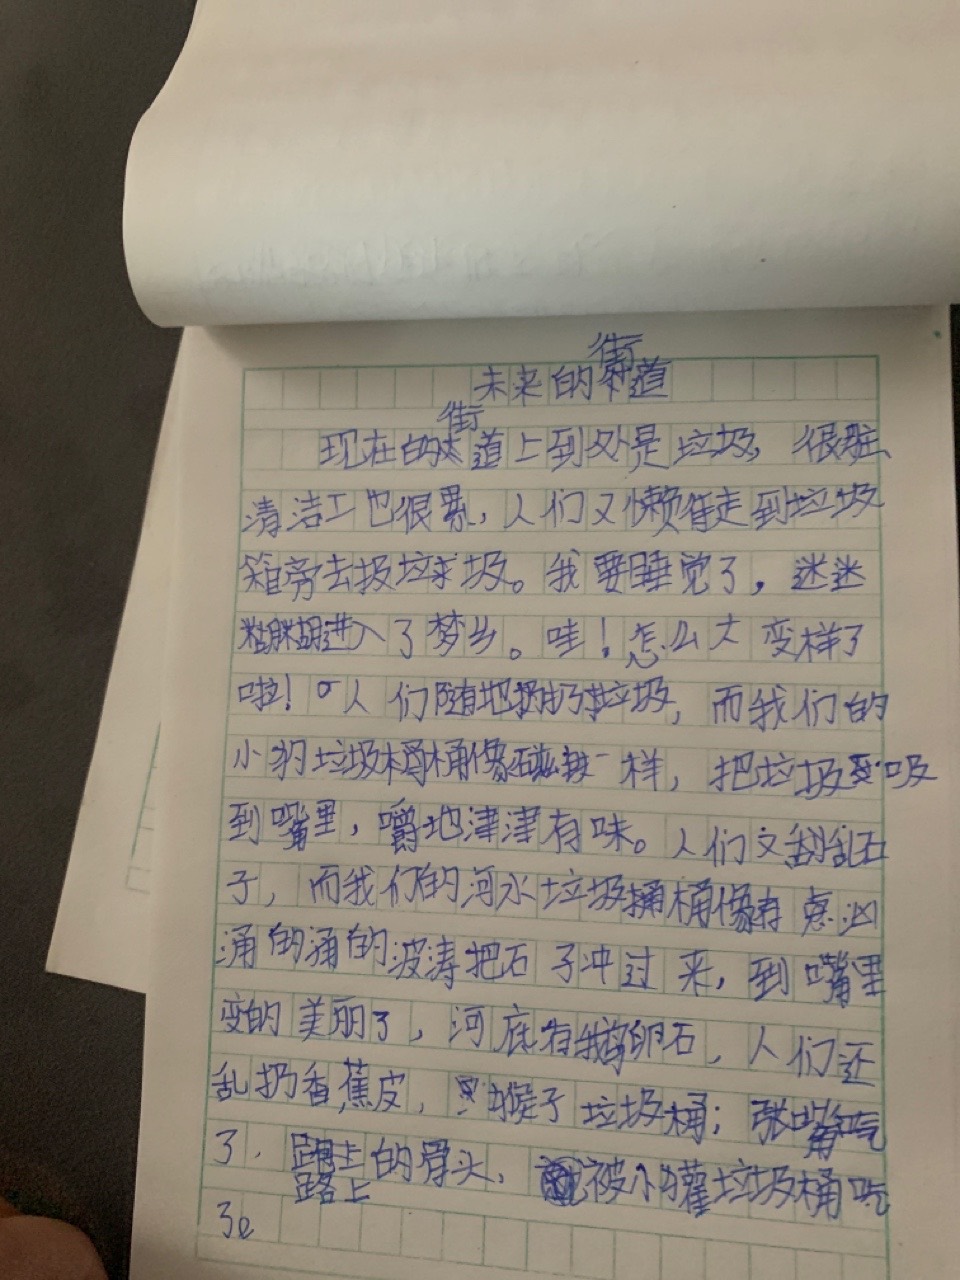 未来的街道
现在的街道上到处是垃圾，很脏，
清洁工也很累，人们又懒得走到垃圾
箱旁去扔垃圾。我要睡觉了，迷迷
糊糊进入了梦乡。哇！怎么大变样了
啦！人们随地扔垃圾，而我们的
小狗垃圾桶像磁铁一样，把垃圾吸
到嘴里，嚼地津津有味。人们又乱石
子，而我们的河水垃圾桶像有点汹
涌的涌的波涛把石子冲过来，到嘴里
变的美丽了，河底有鹅卵石，人们还
乱扔香蕉皮，猴子垃圾桶；张嘴吃
了．路上的骨头，被小垃圾桶吃
了。